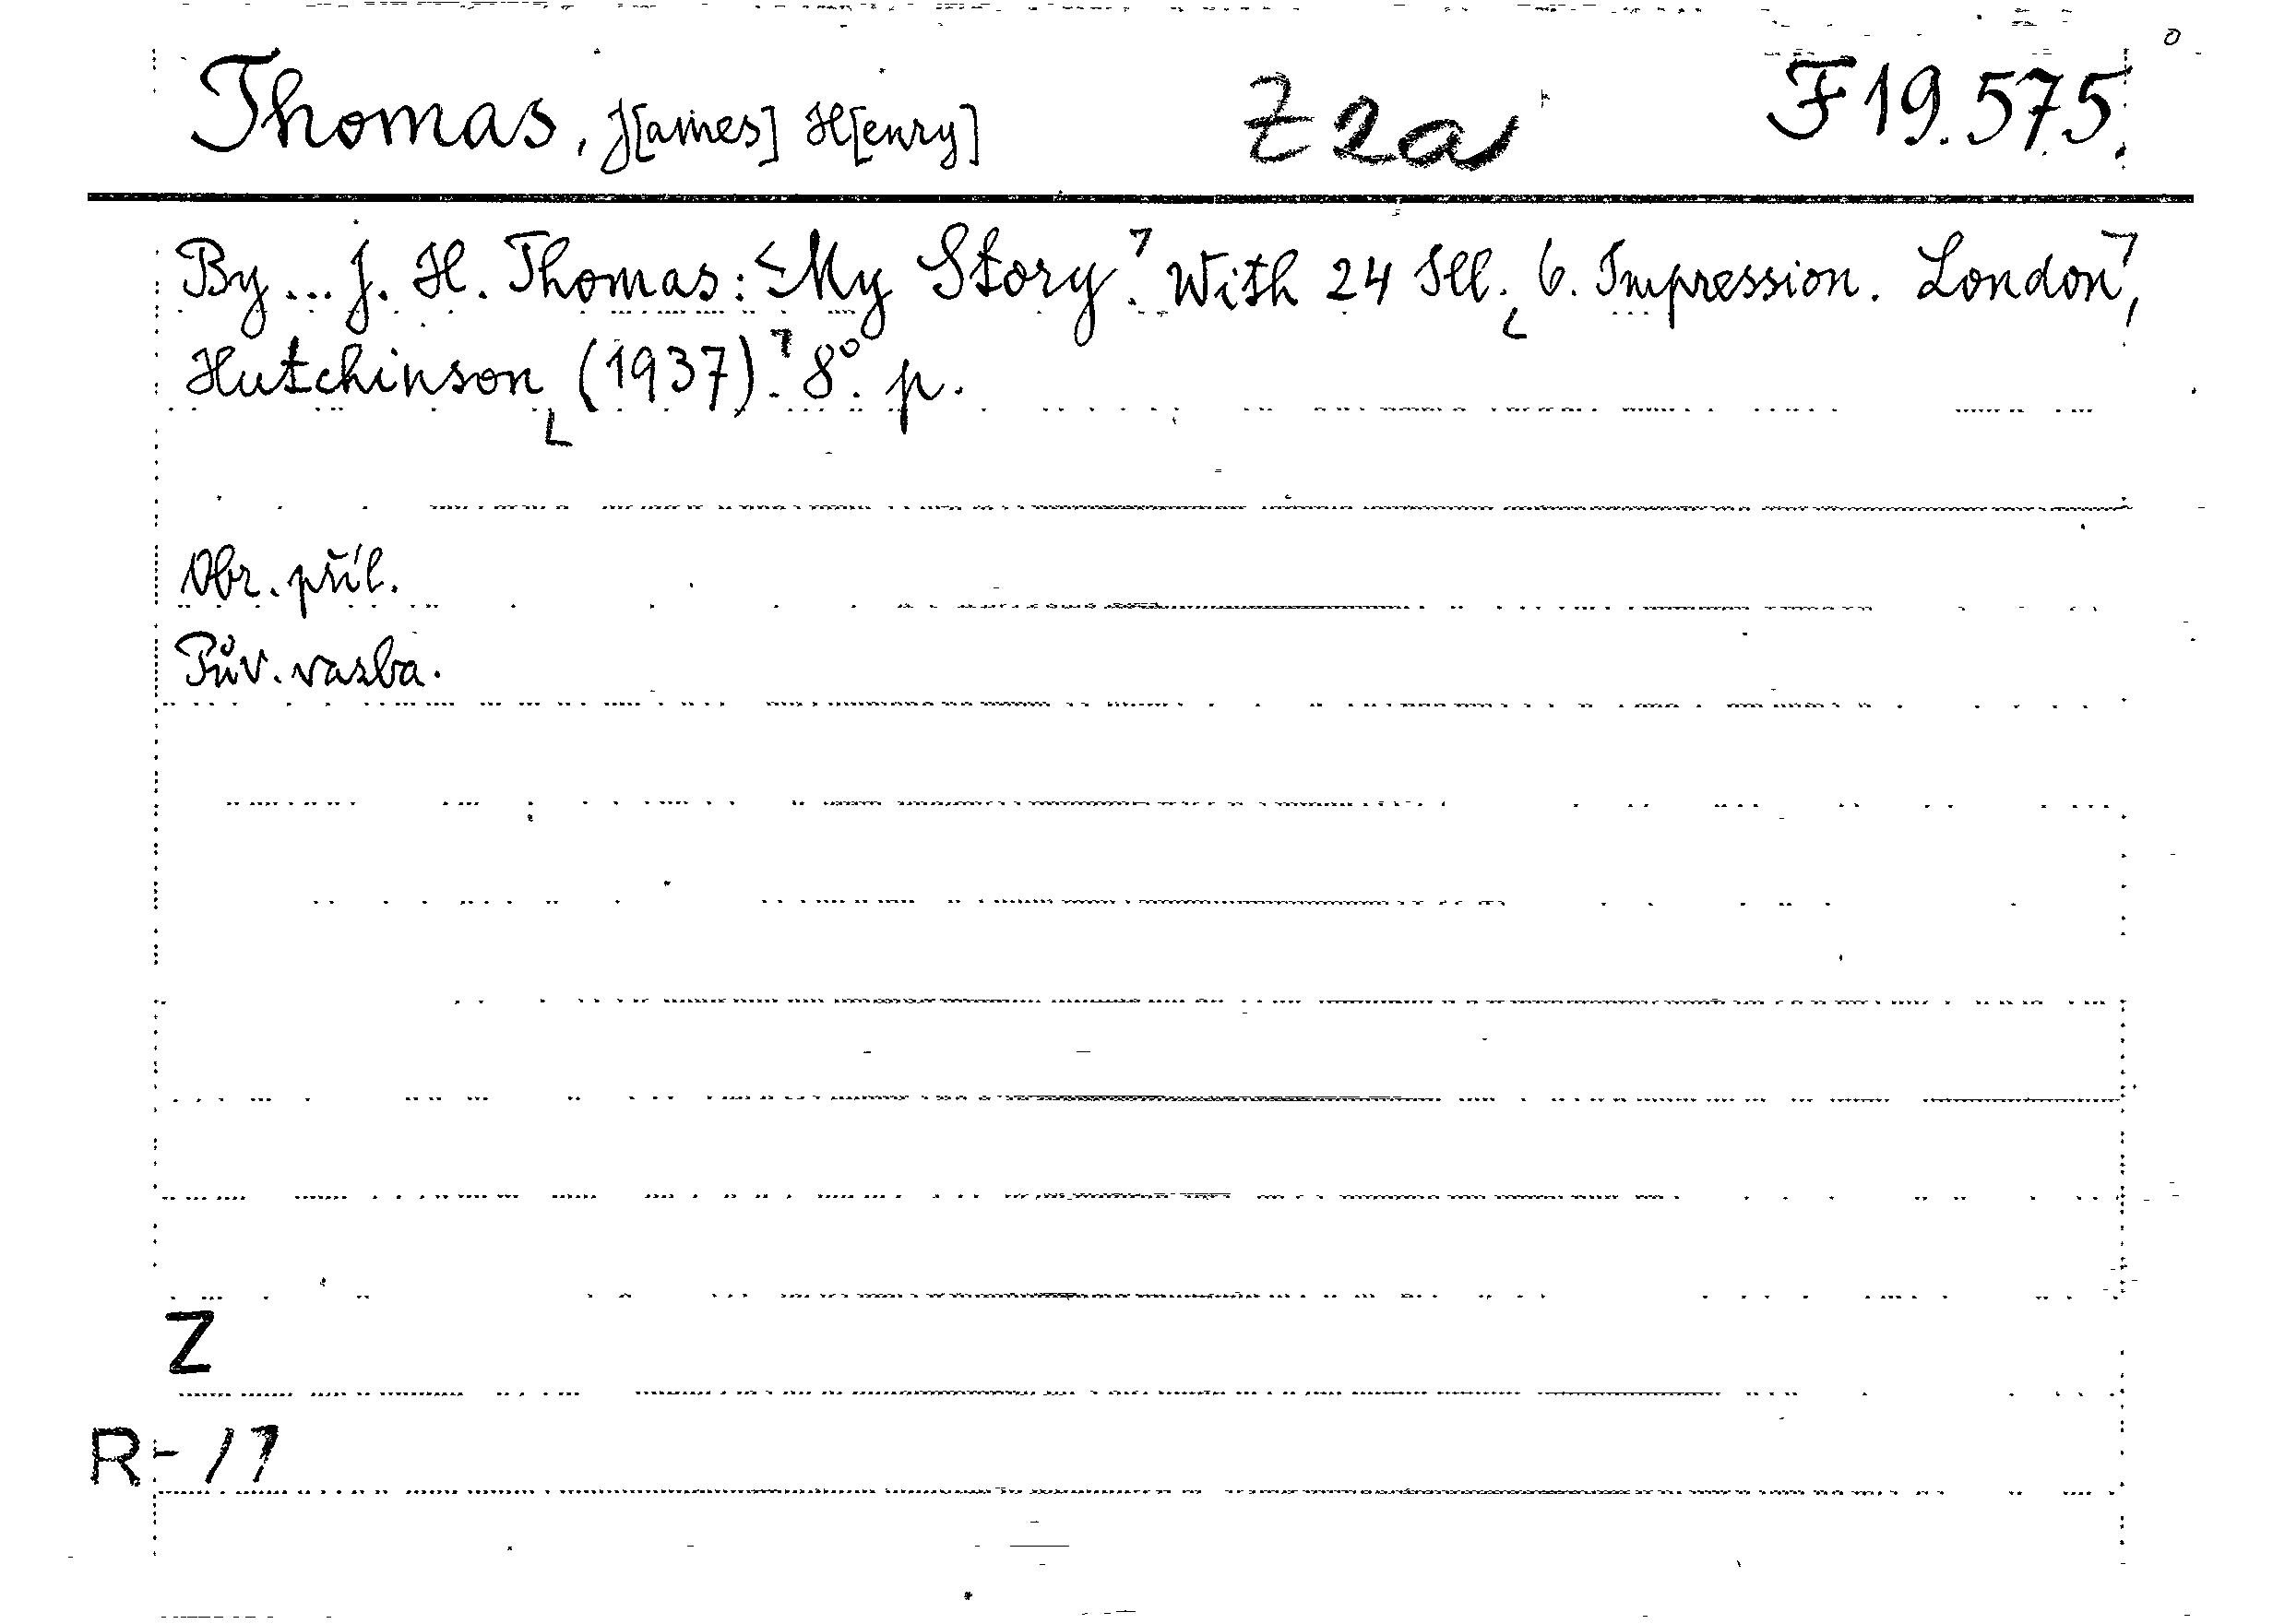 Thomas, J[ames] H[enry] Z 2a F 19.575.
By... J. H. Thomas: My Story. With 24 Ill. 6. Impression. London,
Hutchinson (1937). 8°. p.
Obr. příl.
Pův. vazba.
Z
R-17